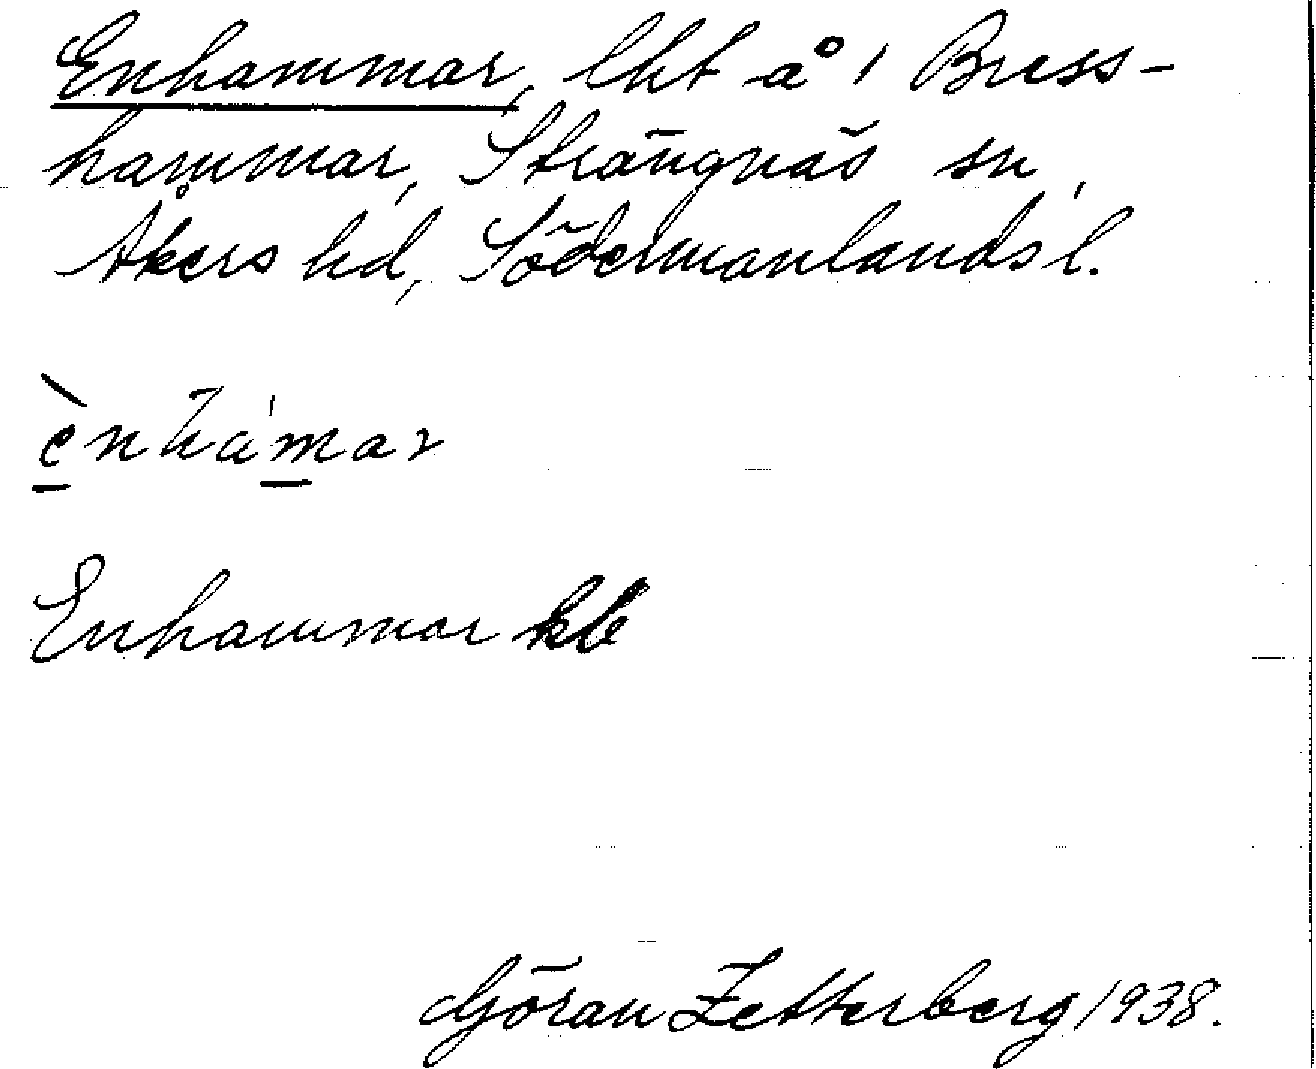 Enhammar, lht å 1 Bress-
hammar, Strängnäs sn,
Åkers hd, Södermanlands l.
ènhámar
Enhammar kb
Göran Zetterberg 1938.